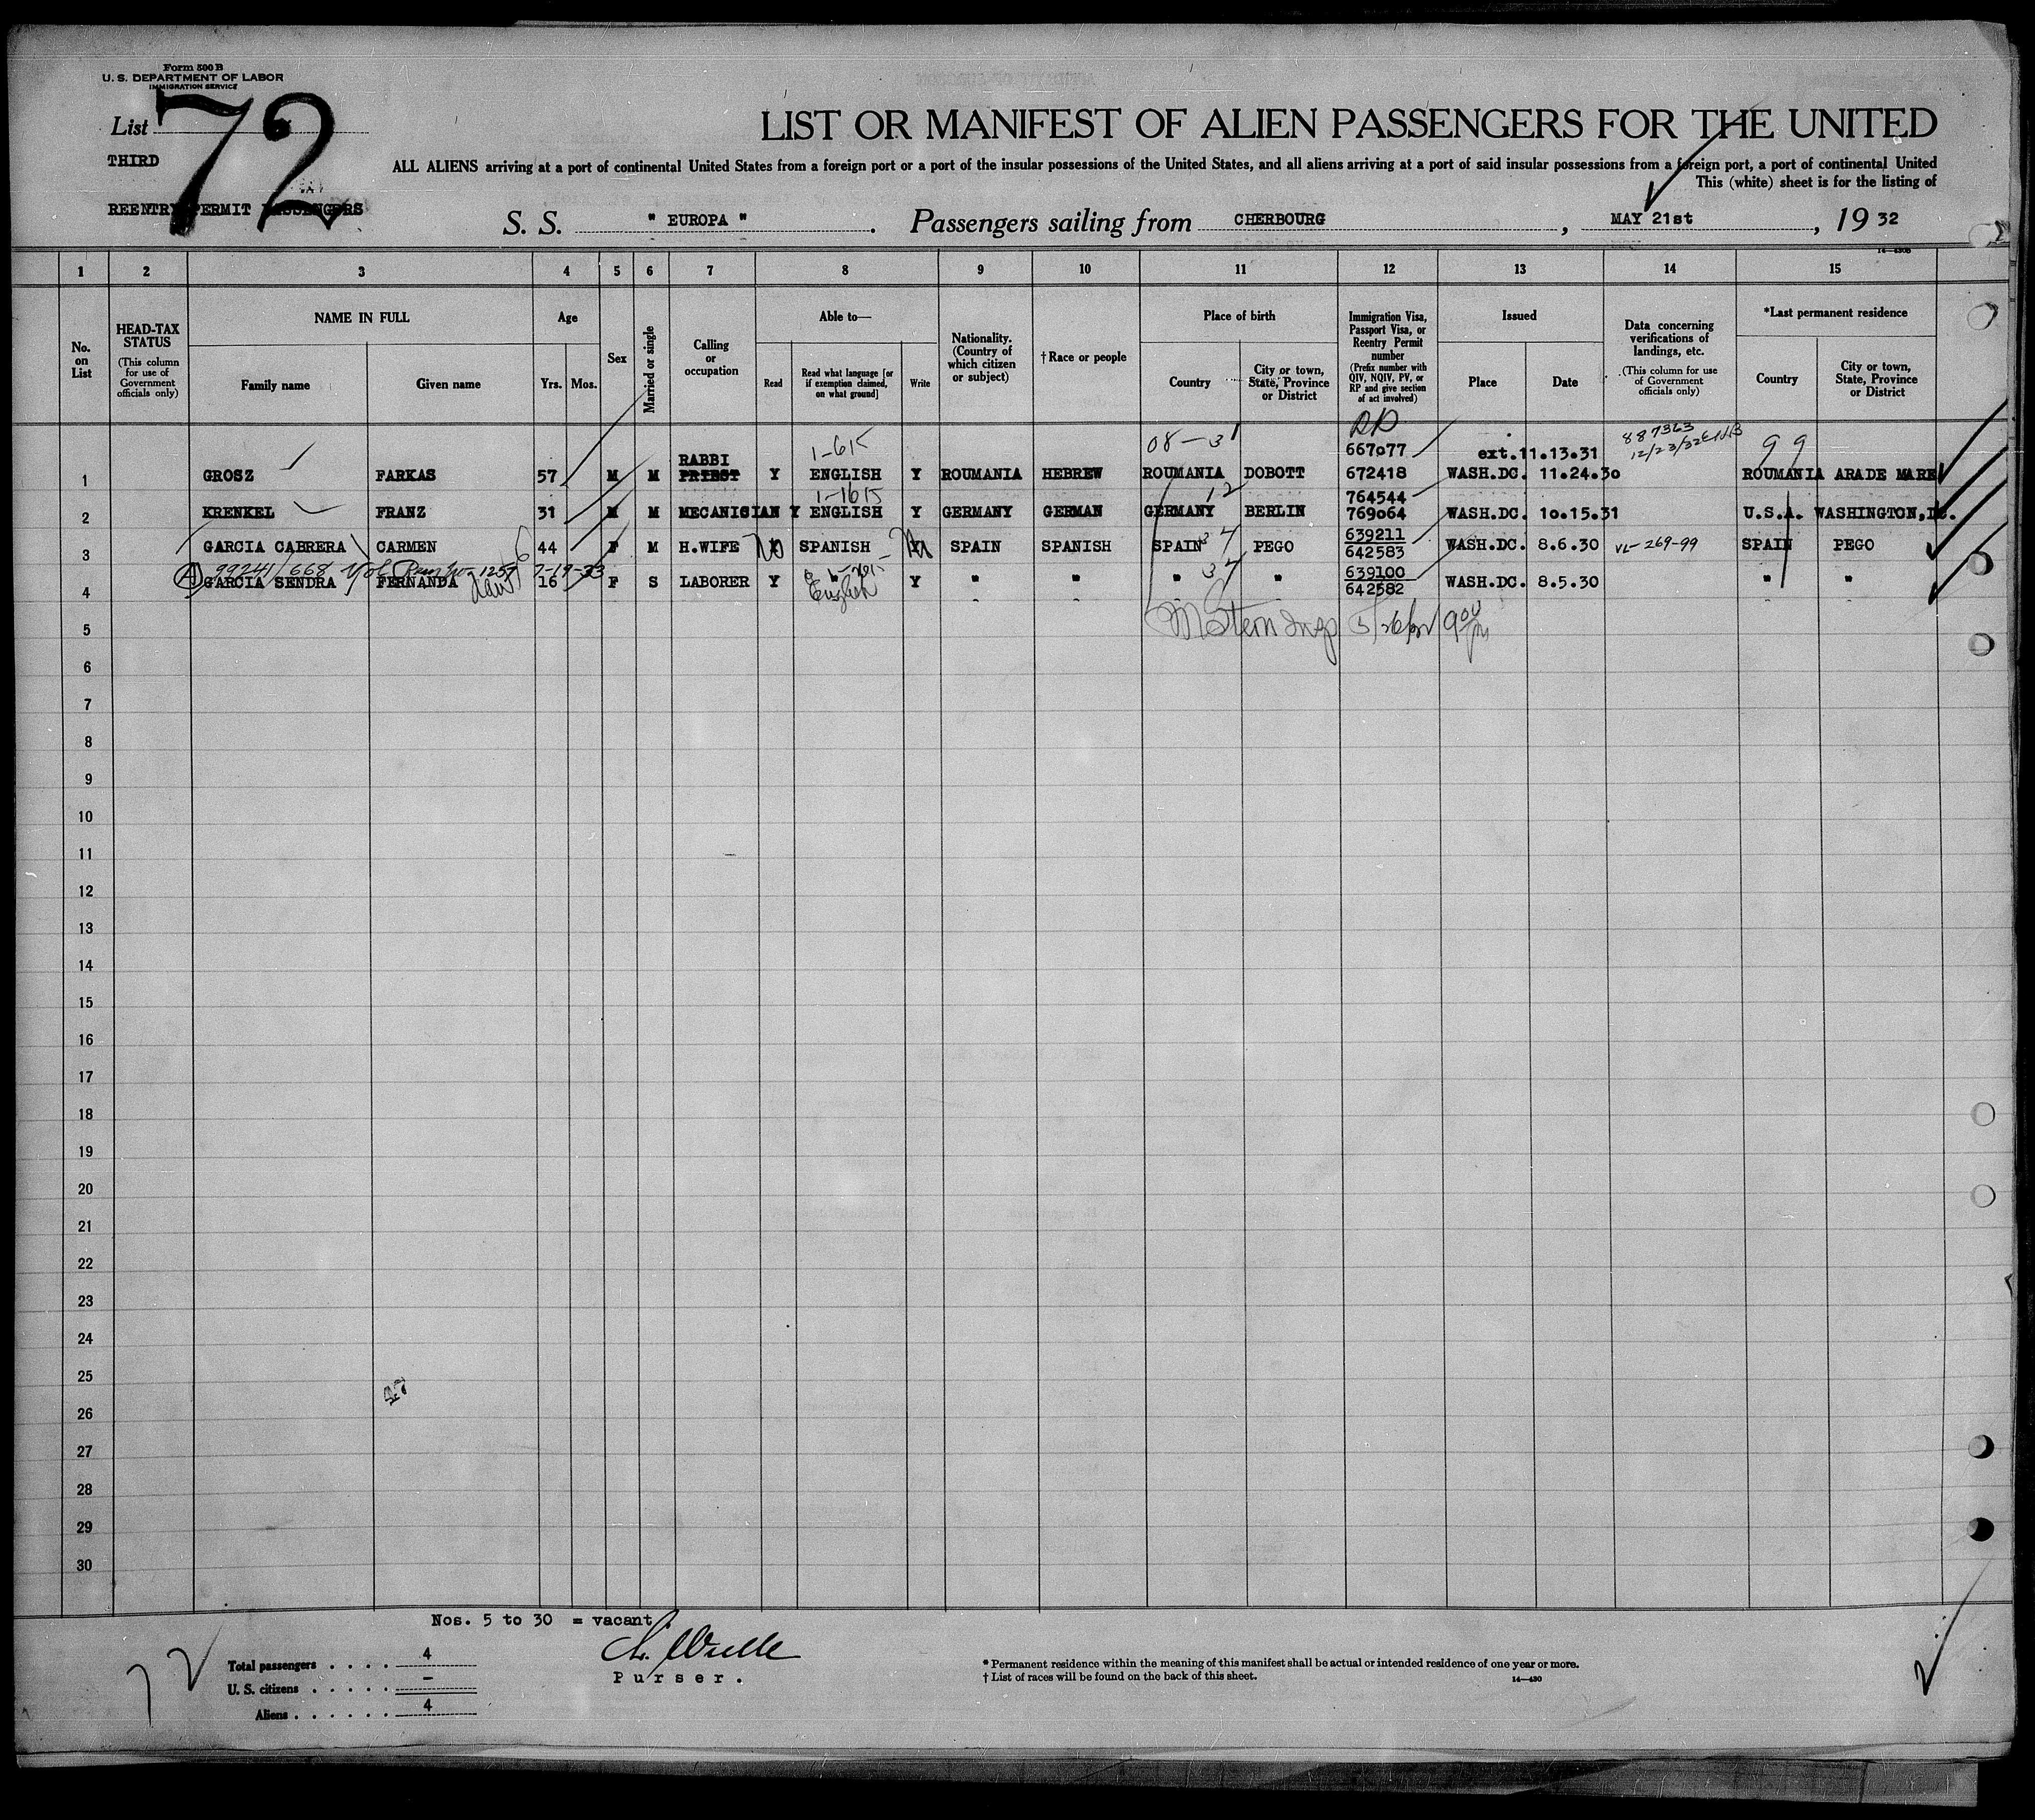 Form 500 B
U. S. DEPARTMENT OF LABOR
IMMIGRATION SERVICE
List 72
THIRD
REENTRY PERMIT PASSENGERS
LIST OR MANIFEST OF ALIEN PASSENGERS FOR THE UNITED
ALL ALIENS arriving at a port of continental United States from a foreign port or a port of the insular possessions of the United States, and all aliens arriving at a port of said insular possessions from a foreign port, a port of continental United
This (white) sheet is for the listing of
S. S. " EUROPA " . Passengers sailing from CHERBOURG , MAY 21st , 19 32
14-430B
1 2 3 4 5 6 7 8 9 10 11 12 13 14 15
No. on List
HEAD-TAX STATUS
(This column for use of Government officials only)
NAME IN FULL
Family name
Given name
Age
Yrs.
Mos.
Sex
Married or single
Calling or occupation
Able to—
Read
Read what language [or if exemption claimed, on what ground]
Write
Nationality. (Country of which citizen or subject)
† Race or people
Place of birth
Country
City or town, State, Province or District
Immigration Visa, Passport Visa, or Reentry Permit number
(Prefix number with QIV, NQIV, PV, or RP and give section of act involved)
Issued
Place
Date
Data concerning verifications of landings, etc.
(This column for use of Government officials only)
*Last permanent residence
Country
City or town, State, Province or District
1-615 08-31 RP 887363
RABBI 667077 ext.11.13.31 12/23/32 99
1 GROSZ FARKAS 57 M M PRIEST Y ENGLISH Y ROUMANIA HEBREW ROUMANIA DOBOTT 672418 WASH.DC. 11.24.30 ROUMANIA ARADE MARE
1-1615 12 764544
2 KRENKEL FRANZ 31 M M MECANICIAN Y ENGLISH Y GERMANY GERMAN GERMANY BERLIN 769064 WASH.DC. 10.15.31 U.S.A. WASHINGTON,DC.
639211
3 GARCIA CABRERA CARMEN 44 F M H.WIFE No SPANISH No SPAIN SPANISH SPAIN 37 PEGO 642583 WASH.DC. 8.6.30 VL-269-99 SPAIN PEGO
A 99241/668 1257 7-19-33 37 639100
4 GARCIA SENDRA FERNANDA 16 F S LABORER Y " English Y " " " " 642582 WASH.DC. 8.5.30 " "
5 M Stern Insp 5/26/32 9 00
6
7
8
9
10
11
12
13
14
15
16
17
18
19
20
21
22
23
24
25
47
26
27
28
29
30
Nos. 5 to 30 = vacant
72
Total passengers . . . . 4
U. S. citizens . . . . . –
Aliens . . . . . . 4
Purser.
* Permanent residence within the meaning of this manifest shall be actual or intended residence of one year or more.
† List of races will be found on the back of this sheet.
14-430